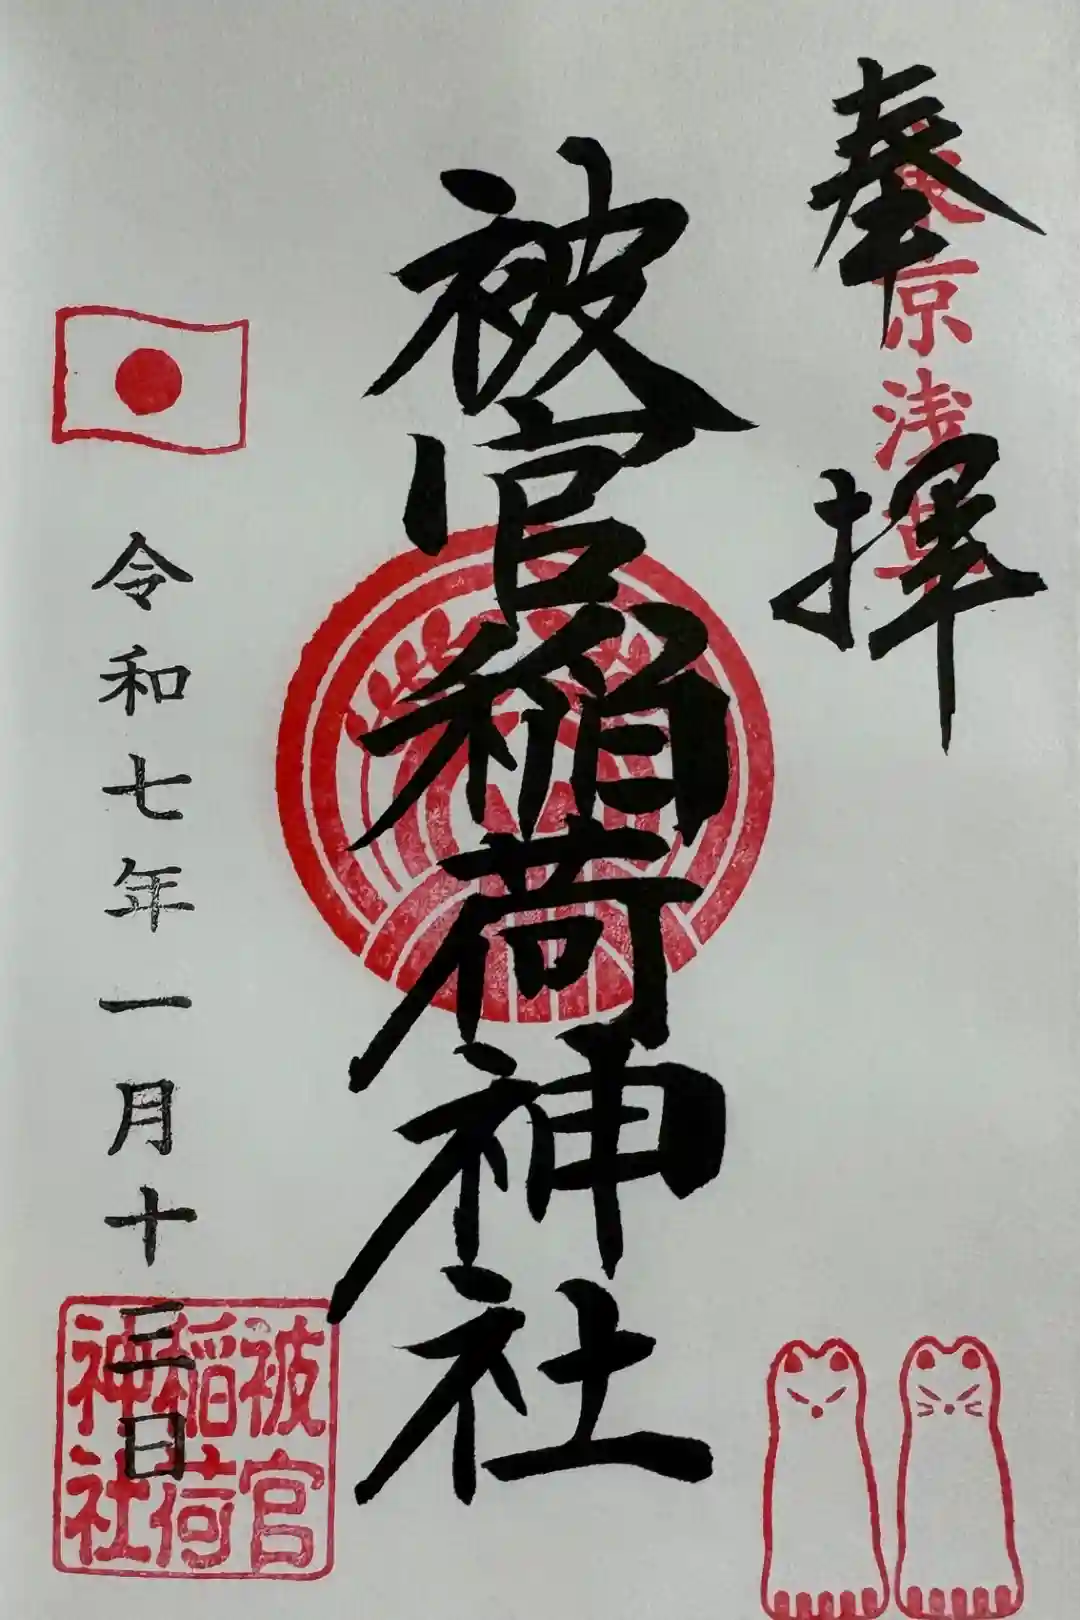 奉拝
東京浅草
被官稲荷神社
令和七年一月十三日
被官
稲荷
神社